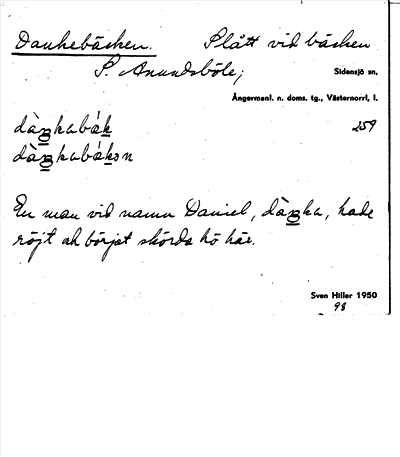 Dankebäcken. Slått vid bäcken
S. Anundsböle; Sidensjö sn,
Ångermanl. n. doms. tg., Västernorrl, l.
259
En man vid namn Daniel, hade
röjt och börjat skörda hö här.
Sven Hiller 1950
98